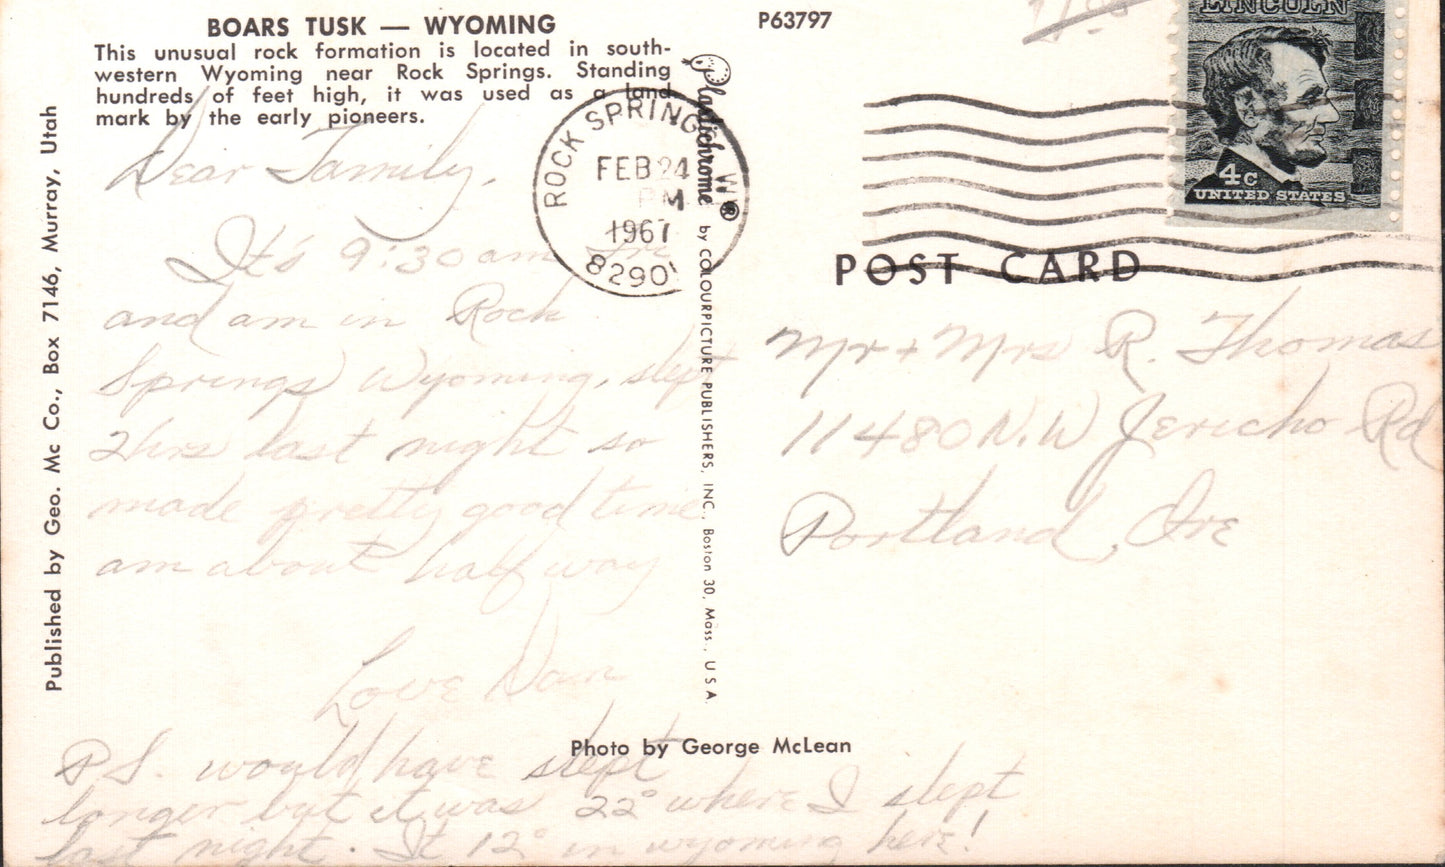 BOARS TUSK — WYOMING
This unusual rock formation is located in south-
western Wyoming near Rock Springs. Standing
hundreds of feet high, it was used as a land
mark by the early pioneers.
P63797
LINCOLN
4c
UNITED STATES
ROCK SPRINGS W
FEB 24
PM
1967
8290
Published by Geo. Mc Co., Box 7146, Murray, Utah
Plastichrome® by COLOURPICTURE PUBLISHERS, INC., Boston 30, Mass., U S A
POST CARD
Dear Family,
It's 9:30 am
and am in Rock
Springs Wyoming, slept
2hrs last night so
made pretty good time
am about half way
Love Dan
P.S. would have slept
longer but it was 22° where I slept
last night. It 12° in wyoming here!
Mr + Mrs R. Thomas
11480 N.W Jericho Rd
Portland, Ore
Photo by George McLean